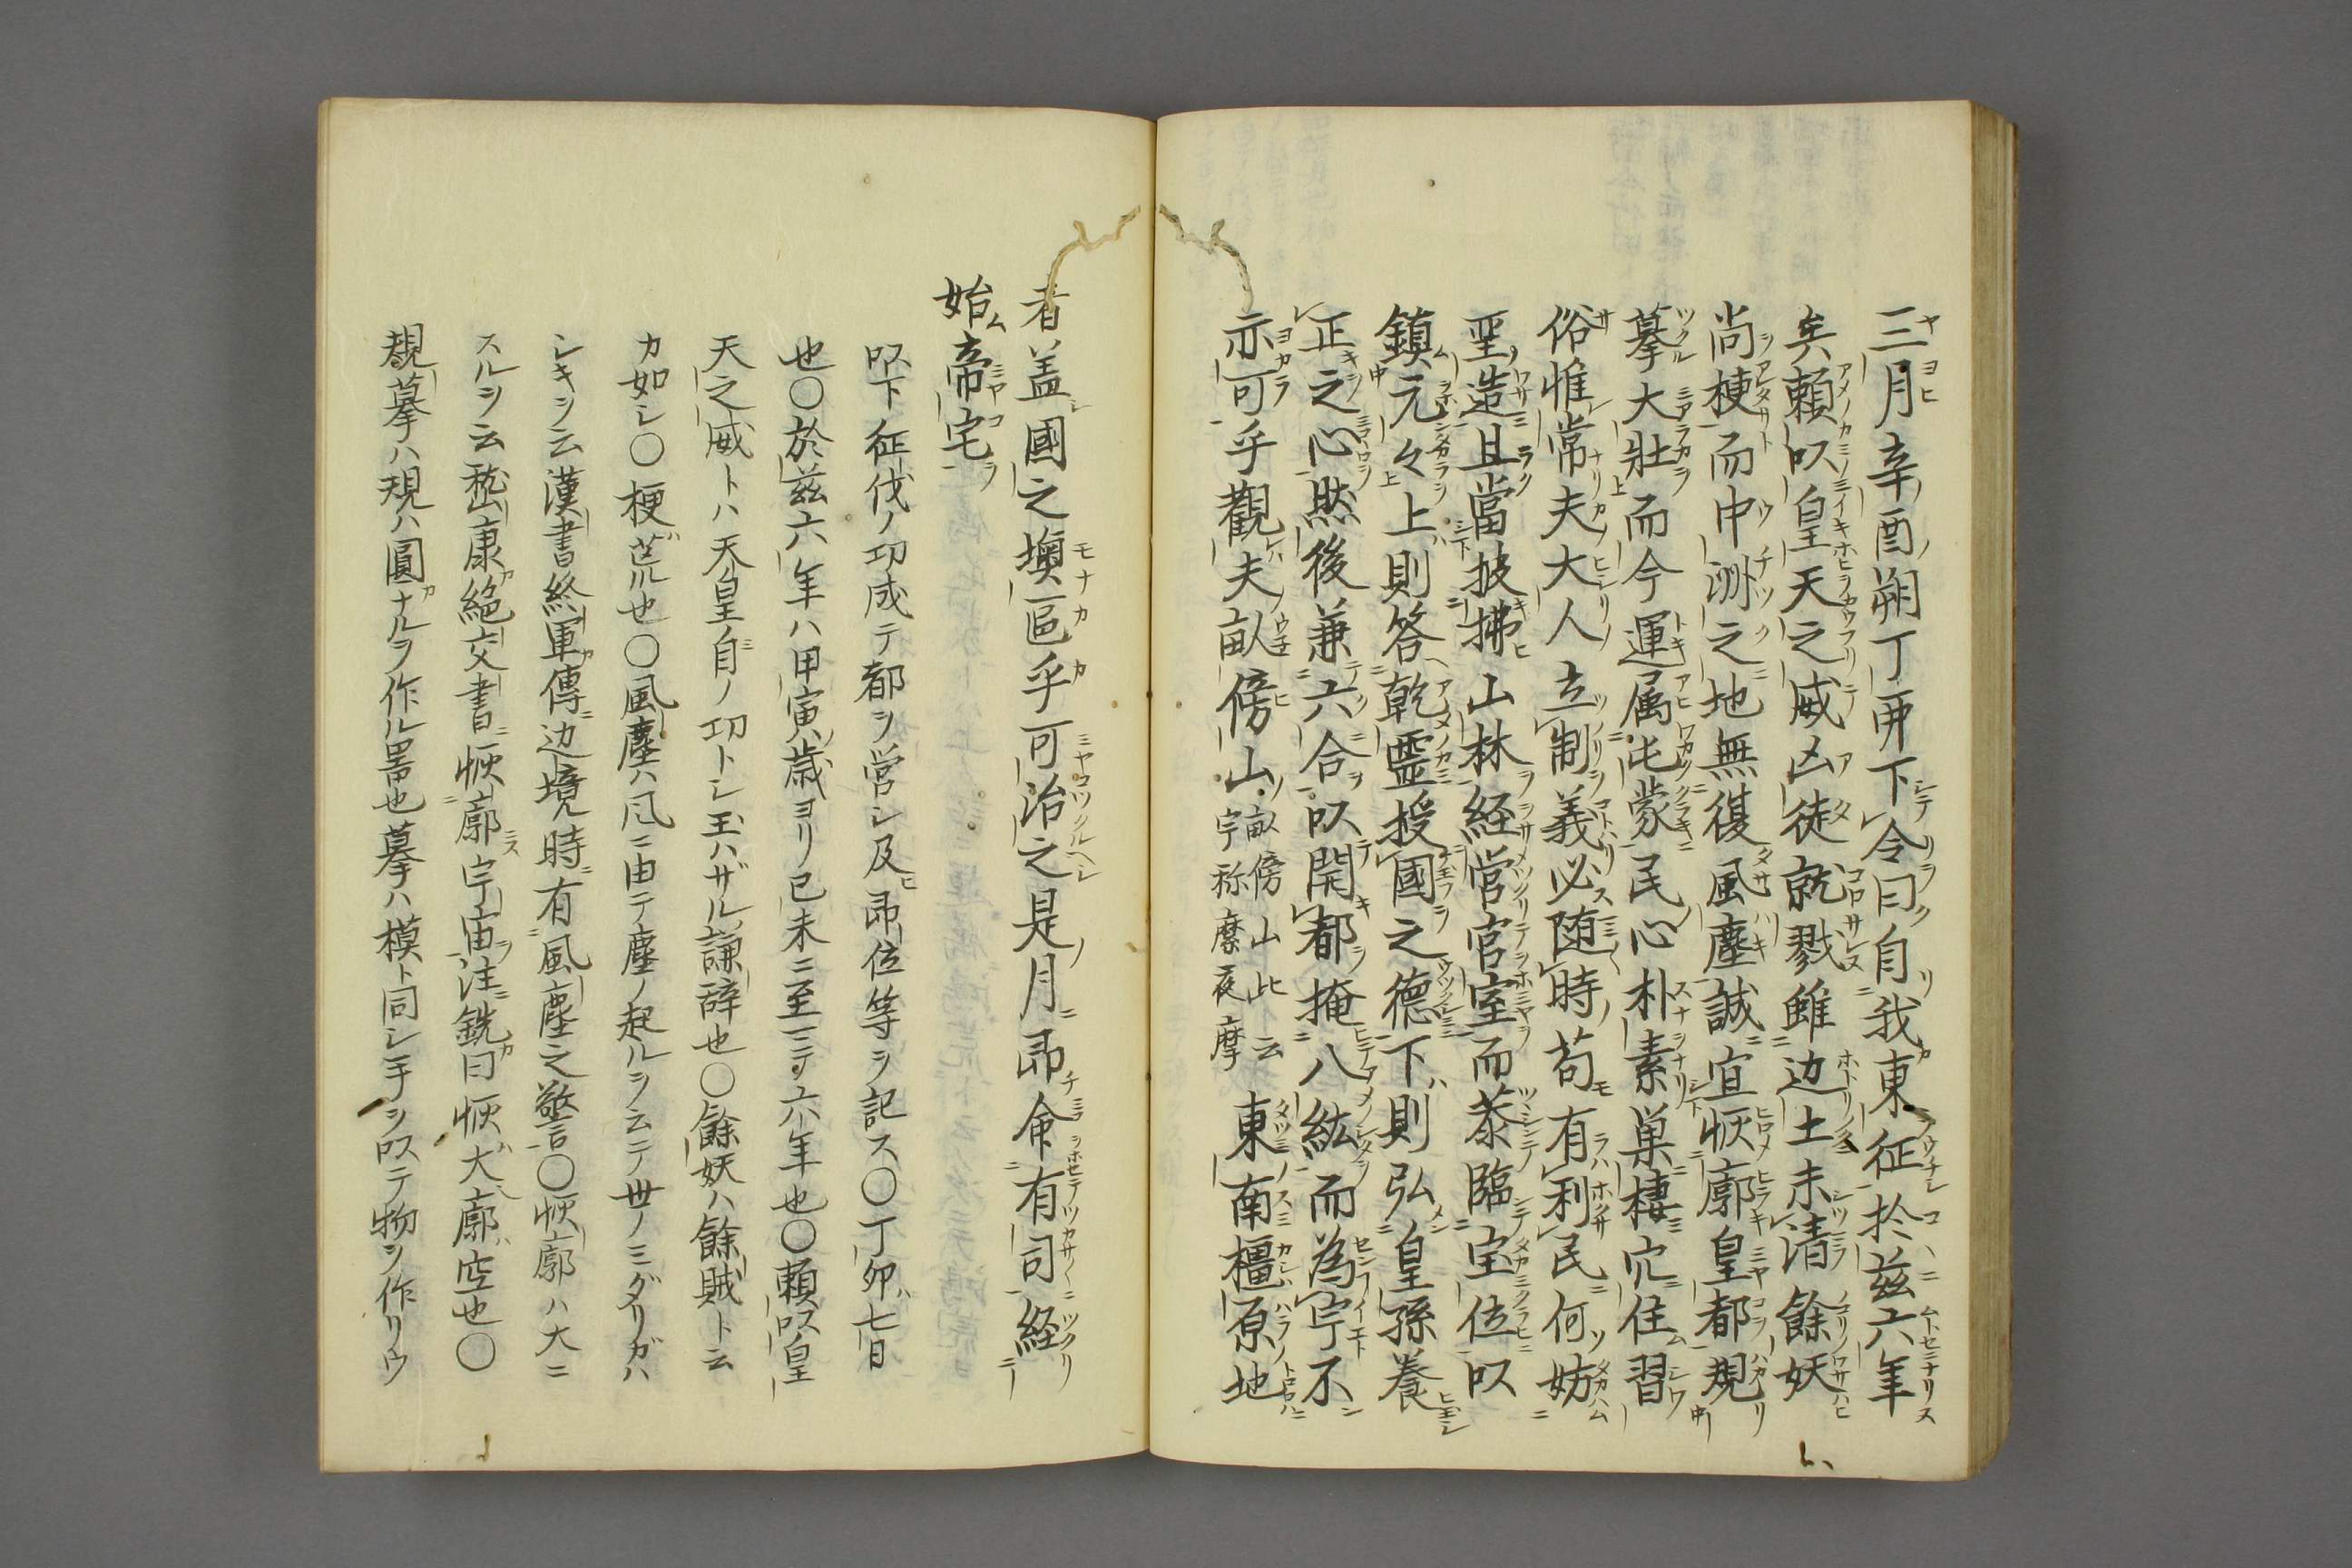 三月辛酉朔丁夘下令曰自我東征於茲六年
矣頼以皇天之威凶徒就戮雖边土未清餘妖
尚梗而中洲之地無復風塵誠宜恢廓皇都規
摹大壮而今運属屯蒙民心朴素巣棲穴住習
俗惟常夫大人立制義必随時苟有利民何妨
聖造且當披拂山林経営宮室而恭臨宝位以
鎮元々上則答乾霊授國之德下則弘皇孫養
正之心然後兼六合以開都掩八紘而為宇不
亦可乎觀夫畝傍山畝傍山此云宇祢縻夜摩東南橿原地
者盖國之墺區乎可治之是月即命有司経
始帝宅
以下征伐ノ功成テ都ヲ営シ及ヒ即位等ヲ記ス〇丁夘ハ七日
也〇於茲六年ハ甲寅ノ歳ヨリ己未ニ至ニテ六年也〇頼以皇
天之威トハ天皇自ノ功トシ玉ハザル謙辞也〇餘妖ハ餘賊ト云
カ如シ〇梗ハ荒ル也〇風塵ハ凡ニ由テ塵ノ起ルヲ云テ世ノミダリガハ
シキヲ云漢書終軍カ傳ニ边境時ニ有風塵之警言〇恢廓ハ大ニ
スルヲ云嵆康カ絶交書ニ恢廓宇宙ヲ注ニ銑カ曰恢ハ大廓ハ空也〇
規摹ハ規ハ圓カナルヲ作ル噐也摹ハ模ト同シ手ヲ以テ物ヲ作リウ